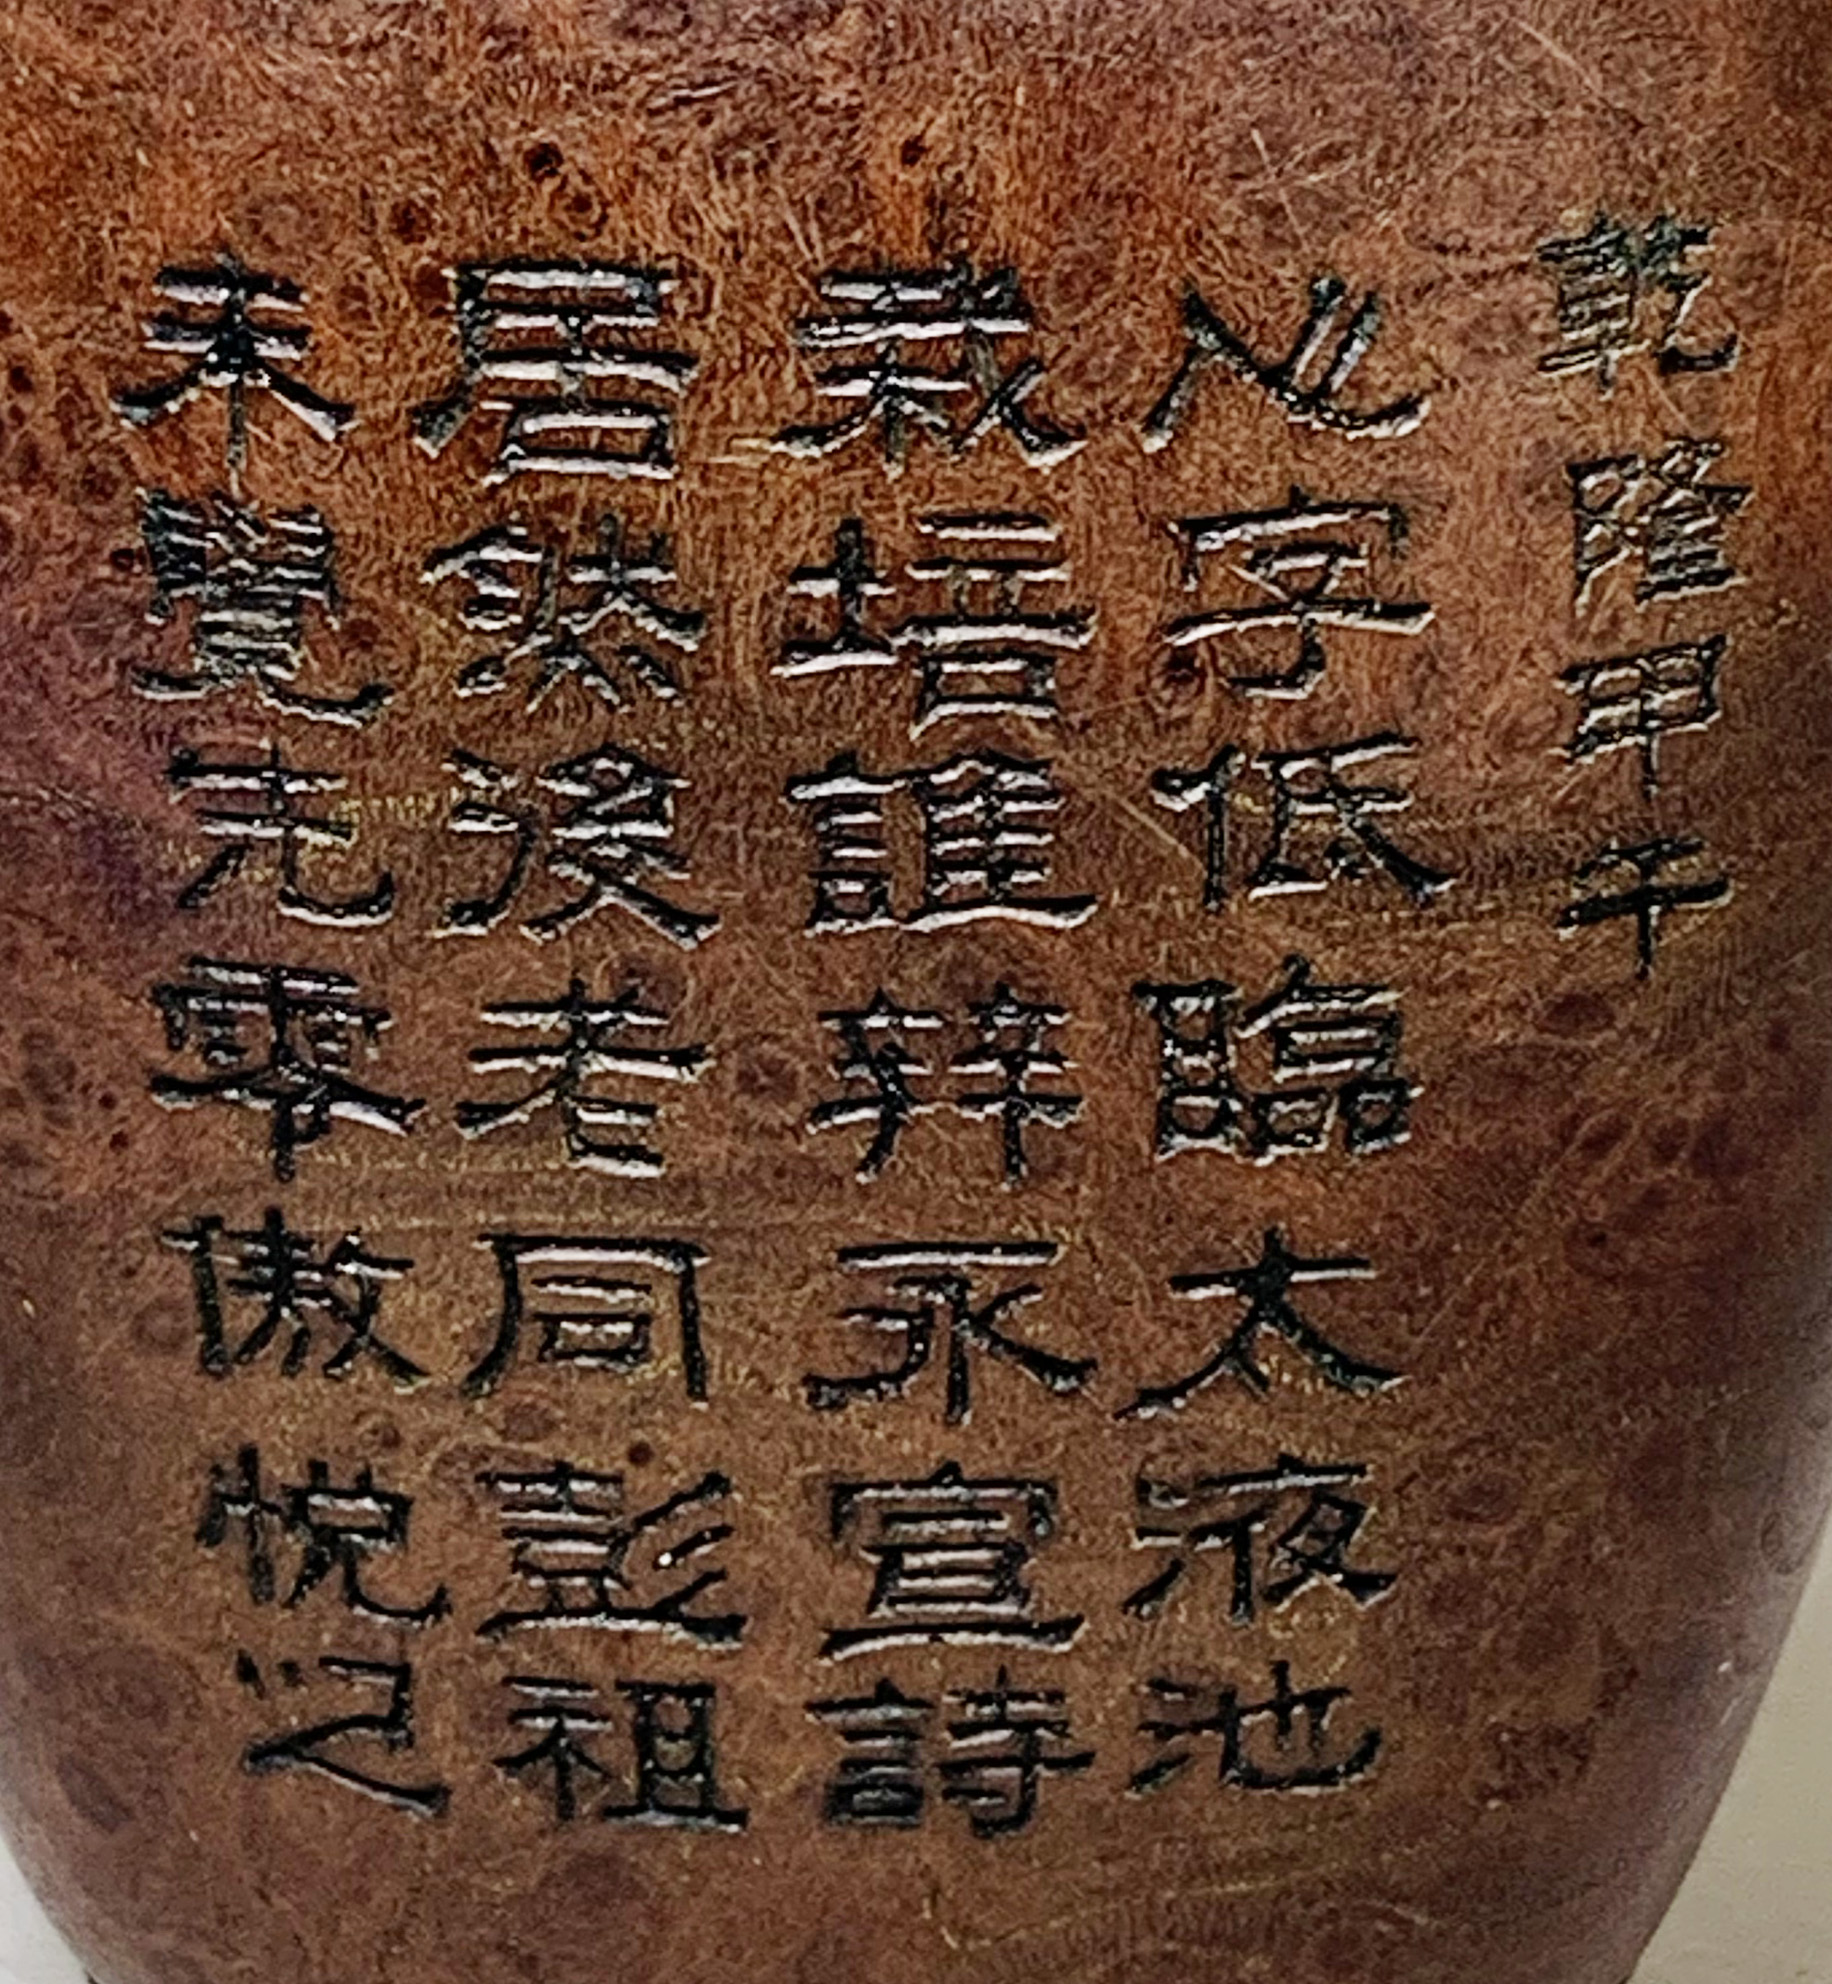 乾隆甲午
心字低臨太液池
栽培誰辨永宣詩
居然後老同彭祖
未覺先零傲悦之